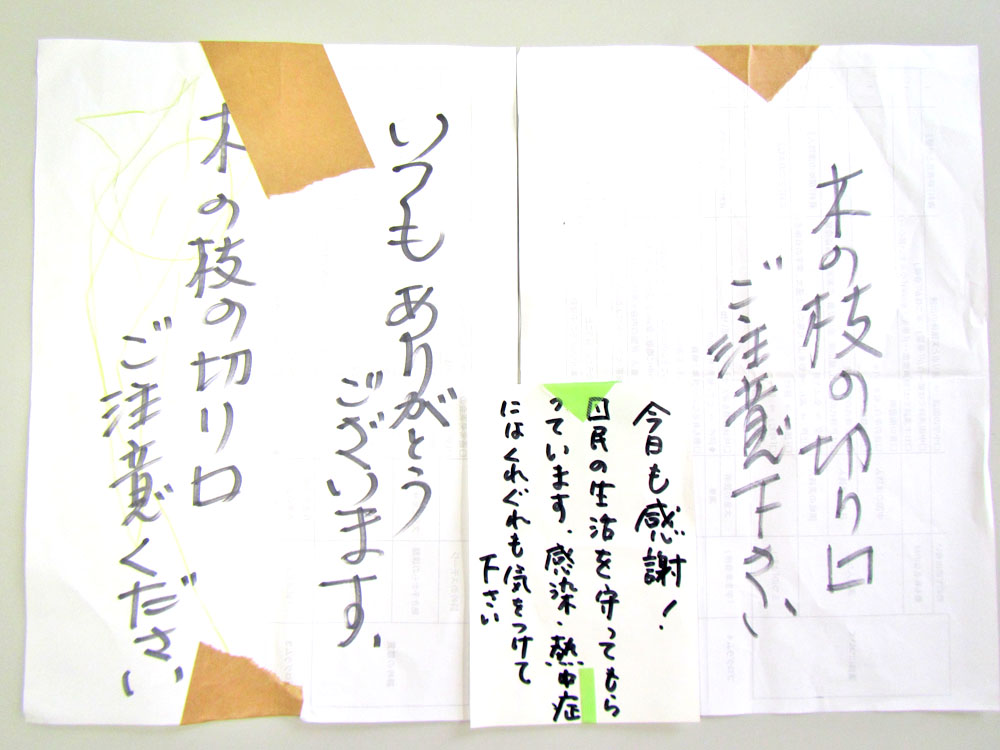 木の枝の切り口
ご注意下さい
今日も感謝!
国民の生活を守ってもら
っています。感染・熱中症
にはくれぐれも気をつけて
下さい
いつもありがとう
ございます。
木の枝の切り口
ご注意ください